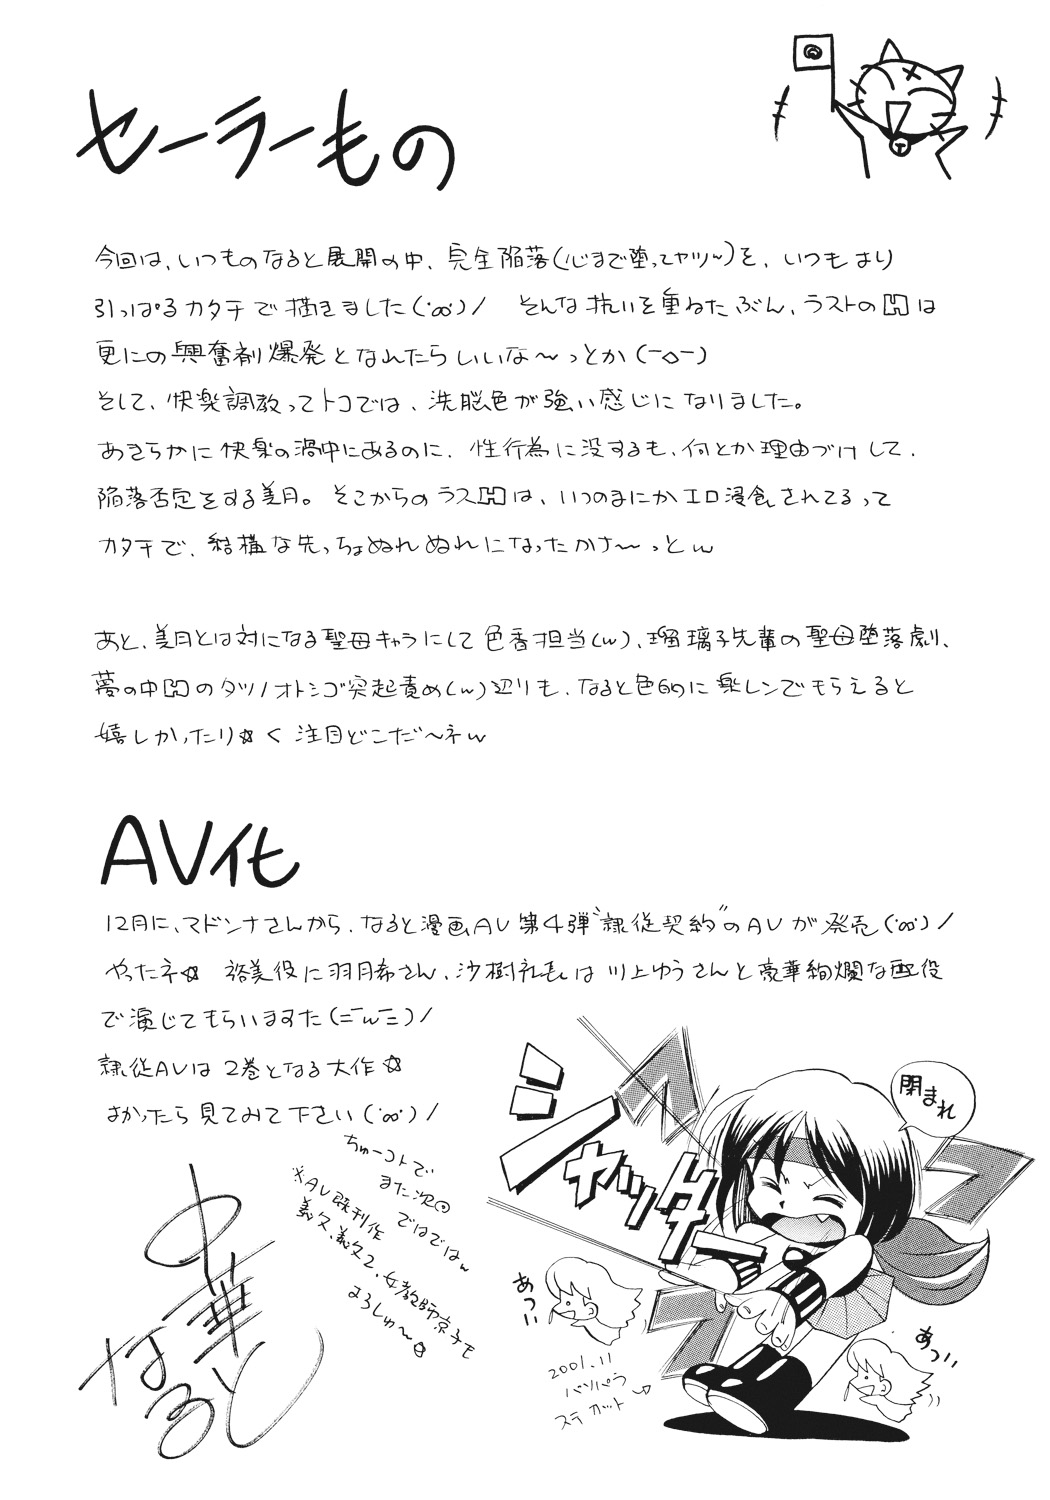 セーラーもの
今回は、いつものなると展開の中、完全陥落(心まで堕ってヤツ~)を、いつもより
引っぱるカタチで描きました(･∞･)/ そんな抗いを重ねたぶん、ラストのHは
更にの興奮剤爆発となれたらいいな～っとか(ー◇ー)
そして、快楽調教ってトコでは、洗脳色が強い感じになりました。
あきらかに快楽の渦中にあるのに、性行為に没するも、何とか理由づけして、
陥落否定をする美月。そこからのラスHは、いつのまにかエロ浸食されてるって
カタチで、結構な先っちょぬれぬれになったかさ～っとw
あと、美月とは対になる聖母キャラにして色香担当(w)、瑠璃子先輩の聖母堕落劇、
夢の中Hのタツノオトシゴ突起責め(w)辺りも、なると色的に楽しンでもらえると
嬉しかったり☆く 注目どこだ～ネw
AV化
12月に、マドンナさんから、なると漫画AV第4弾"隷従契約"のAVが発売(･∞･)/
やったネ☆ 裕美役に羽月希さん、沙樹礼長は川上ゆうさんと豪華絢爛な配役
で演じてもらいますた(=ーwー=)/
隷従AVは2巻となる大作☆
よかったら見てみて下さい(･∞･)/
ちゅーコトで
また次回
ではではw
※AV既刊作
義父、義父2、女教師京子モ
よろしゅ～☆
中華
なると
シャッター
閉まれ
あっ!!
あっ!!
2001.11
バソパラ
ステカット